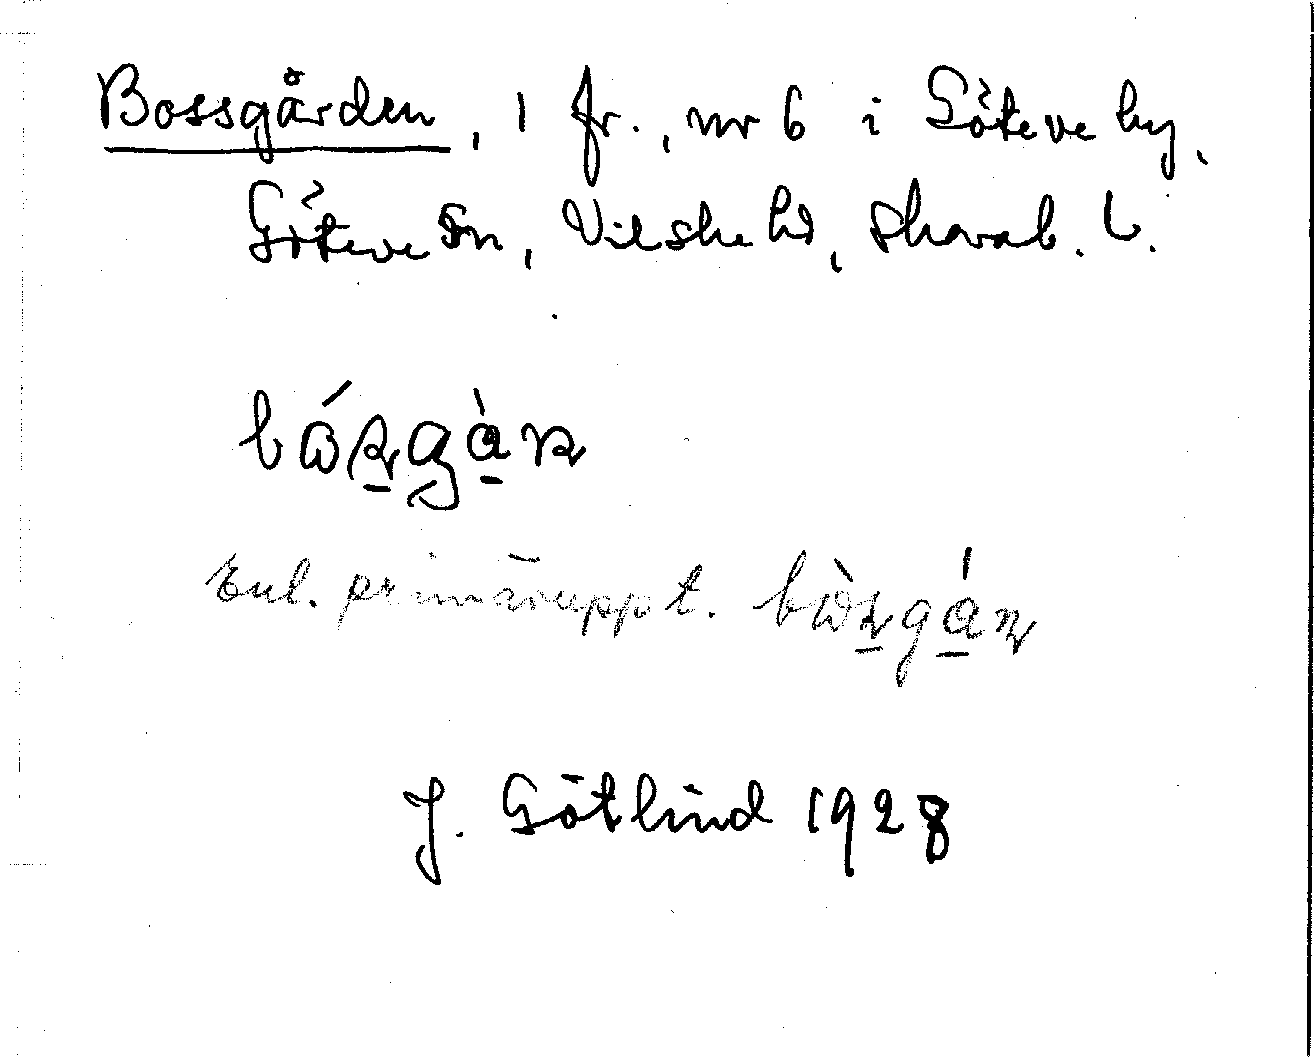 Bossgården, 1 fr., nr 6 i Göteve by,
Göteve sn, Vilske hd, Skarab. l.
Enl. primäruppt.
J. Götlind 1928